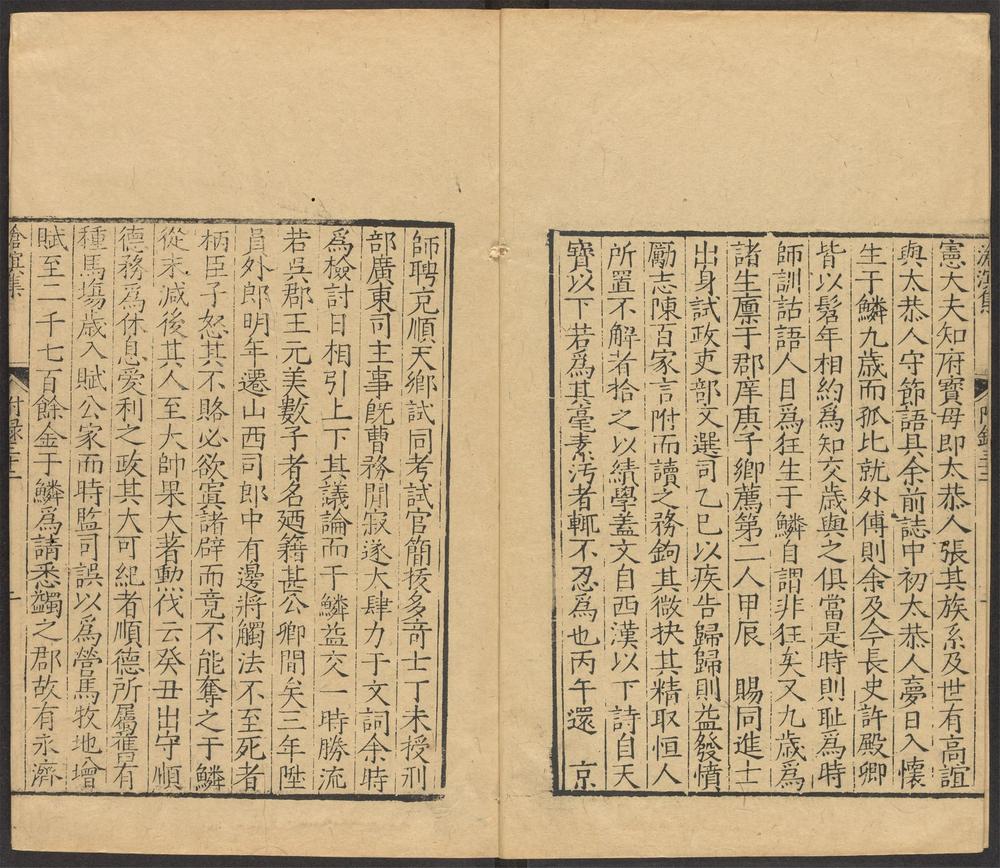 滄溟集 附錄三
憲大夫知府寶母即太恭人張其族系及世有高誼
與太恭人守節語具余前誌中初太恭人夢日入懷
生于鱗九歲而孤比就外傅則余及今長史許殿卿
皆以髫年相約為知交歲與之俱當是時則耻為時
師訓詁語人目為狂生于鱗自謂非狂矣又九歲為
諸生廩于郡庠庚子鄉薦第二人甲辰 賜同進士
出身試政吏部文選司乙巳以疾告歸歸則益發憤
勵志陳百家言附而讀之務鉤其微抉其精取恒人
所置不解者拾之以績學蓋文自西漢以下詩自天
寶以下若為其毫素汚者輒不忍為也丙午還 京
師聘充順天鄉試同考試官簡拔多奇士丁未授刑
部廣東司主事既曹務閒寂遂大肆力于文詞余時
為檢討日相引上下其議論而于鱗益交一時勝流
若吳郡王元美數子者名廼籍甚公卿間矣三年陞
員外郎明年遷山西司郎中有邊將觸法不至死者
柄臣子怒其不賂必欲寘諸辟而竟不能奪之于鱗
從末減後其人至大帥果大著勳伐云癸丑出守順
德務為休息愛利之政其大可紀者順德所屬舊有
種馬塲歲入賦公家而時監司誤以為營馬牧地增
賦至二千七百餘金于鱗為請悉蠲之郡故有永濟
滄溟集 附錄三 二